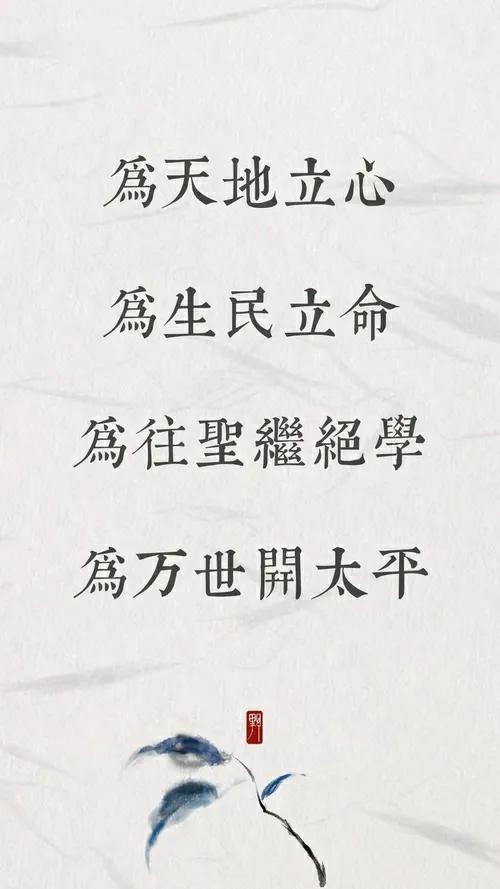 爲天地立心
爲生民立命
爲往聖繼絕學
爲万世開太平